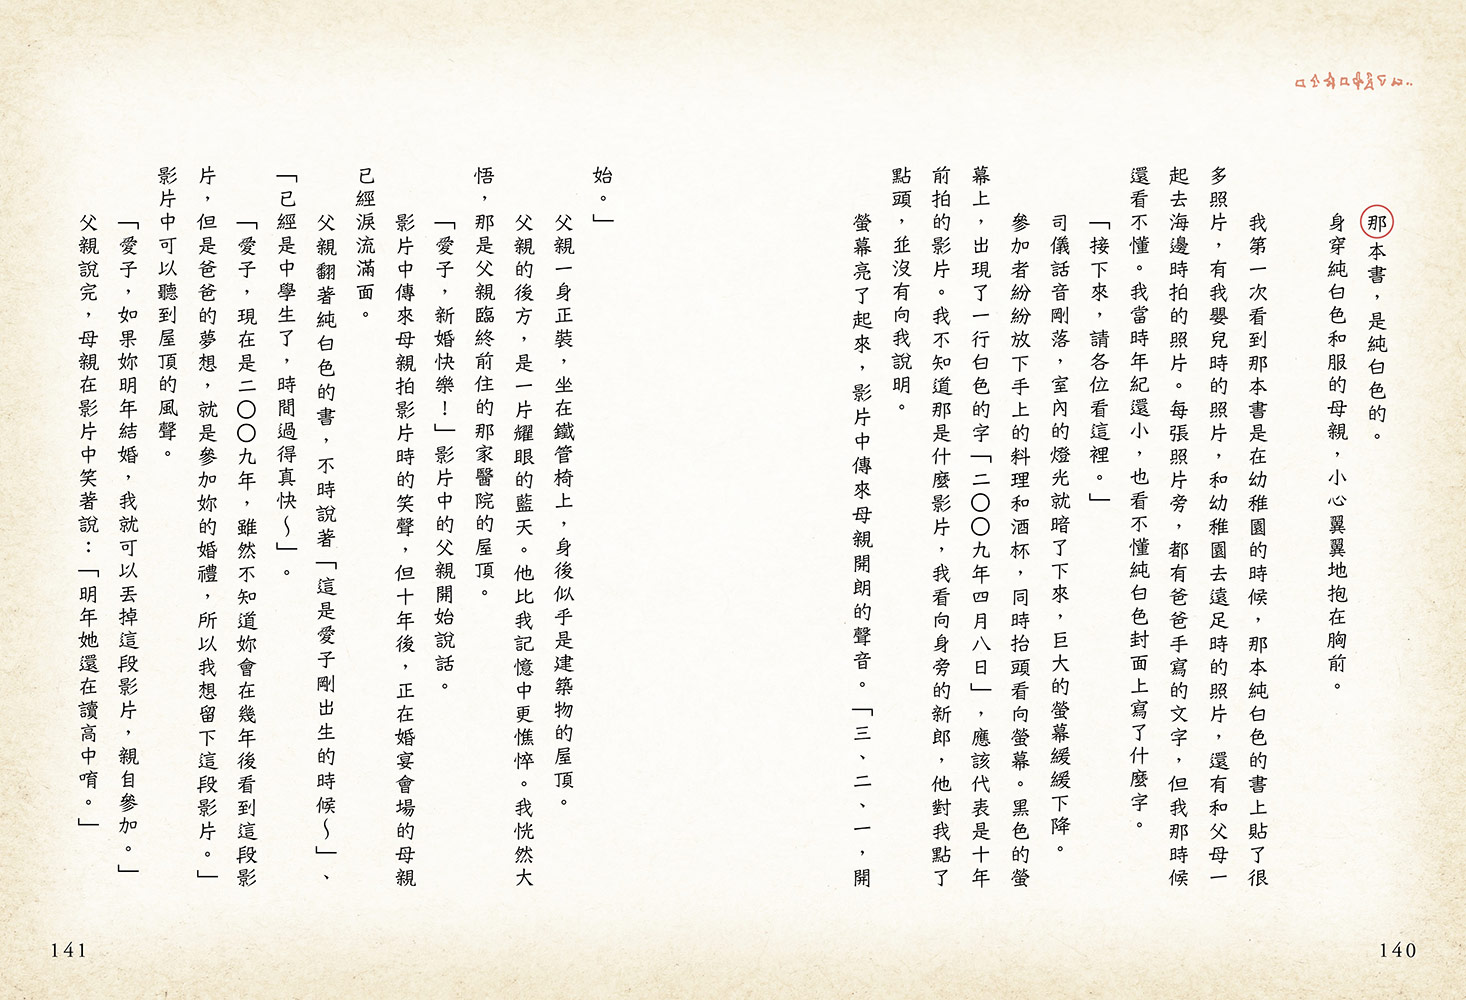 那本書，是純白色的。
身穿純白色和服的母親，小心翼翼地抱在胸前。
我第一次看到那本書是在幼稚園的時候，那本純白色的書上貼了很
多照片，有我嬰兒時的照片，和幼稚園去遠足時的照片，還有和父母一
起去海邊時拍的照片。每張照片旁，都有爸爸手寫的文字，但我那時候
還看不懂。我當時年紀還小，也看不懂純白色封面上寫了什麼字。
「接下來，請各位看這裡。」
司儀話音剛落，室內的燈光就暗了下來，巨大的螢幕緩緩下降。
參加者紛紛放下手上的料理和酒杯，同時抬頭看向螢幕。黑色的螢
幕上，出現了一行白色的字「二〇〇九年四月八日」，應該代表是十年
前拍的影片。我不知道那是什麼影片，我看向身旁的新郎，他對我點了
點頭，並沒有向我說明。
螢幕亮了起來，影片中傳來母親開朗的聲音。「三、二、一，開
140
始。」
父親一身正裝，坐在鐵管椅上，身後似乎是建築物的屋頂。
父親的後方，是一片耀眼的藍天。他比我記憶中更憔悴。我恍然大
悟，那是父親臨終前住的那家醫院的屋頂。
「愛子，新婚快樂！」影片中的父親開始說話。
影片中傳來母親拍影片時的笑聲，但十年後，正在婚宴會場的母親
已經淚流滿面。
父親翻著純白色的書，不時說著「這是愛子剛出生的時候～」、
「已經是中學生了，時間過得真快～」。
「愛子，現在是二〇〇九年，雖然不知道妳會在幾年後看到這段影
片，但是爸爸的夢想，就是參加妳的婚禮，所以我想留下這段影片。」
影片中可以聽到屋頂的風聲。
「愛子，如果妳明年結婚，我就可以丟掉這段影片，親自參加。」
父親說完，母親在影片中笑著說：「明年她還在讀高中唷。」
141